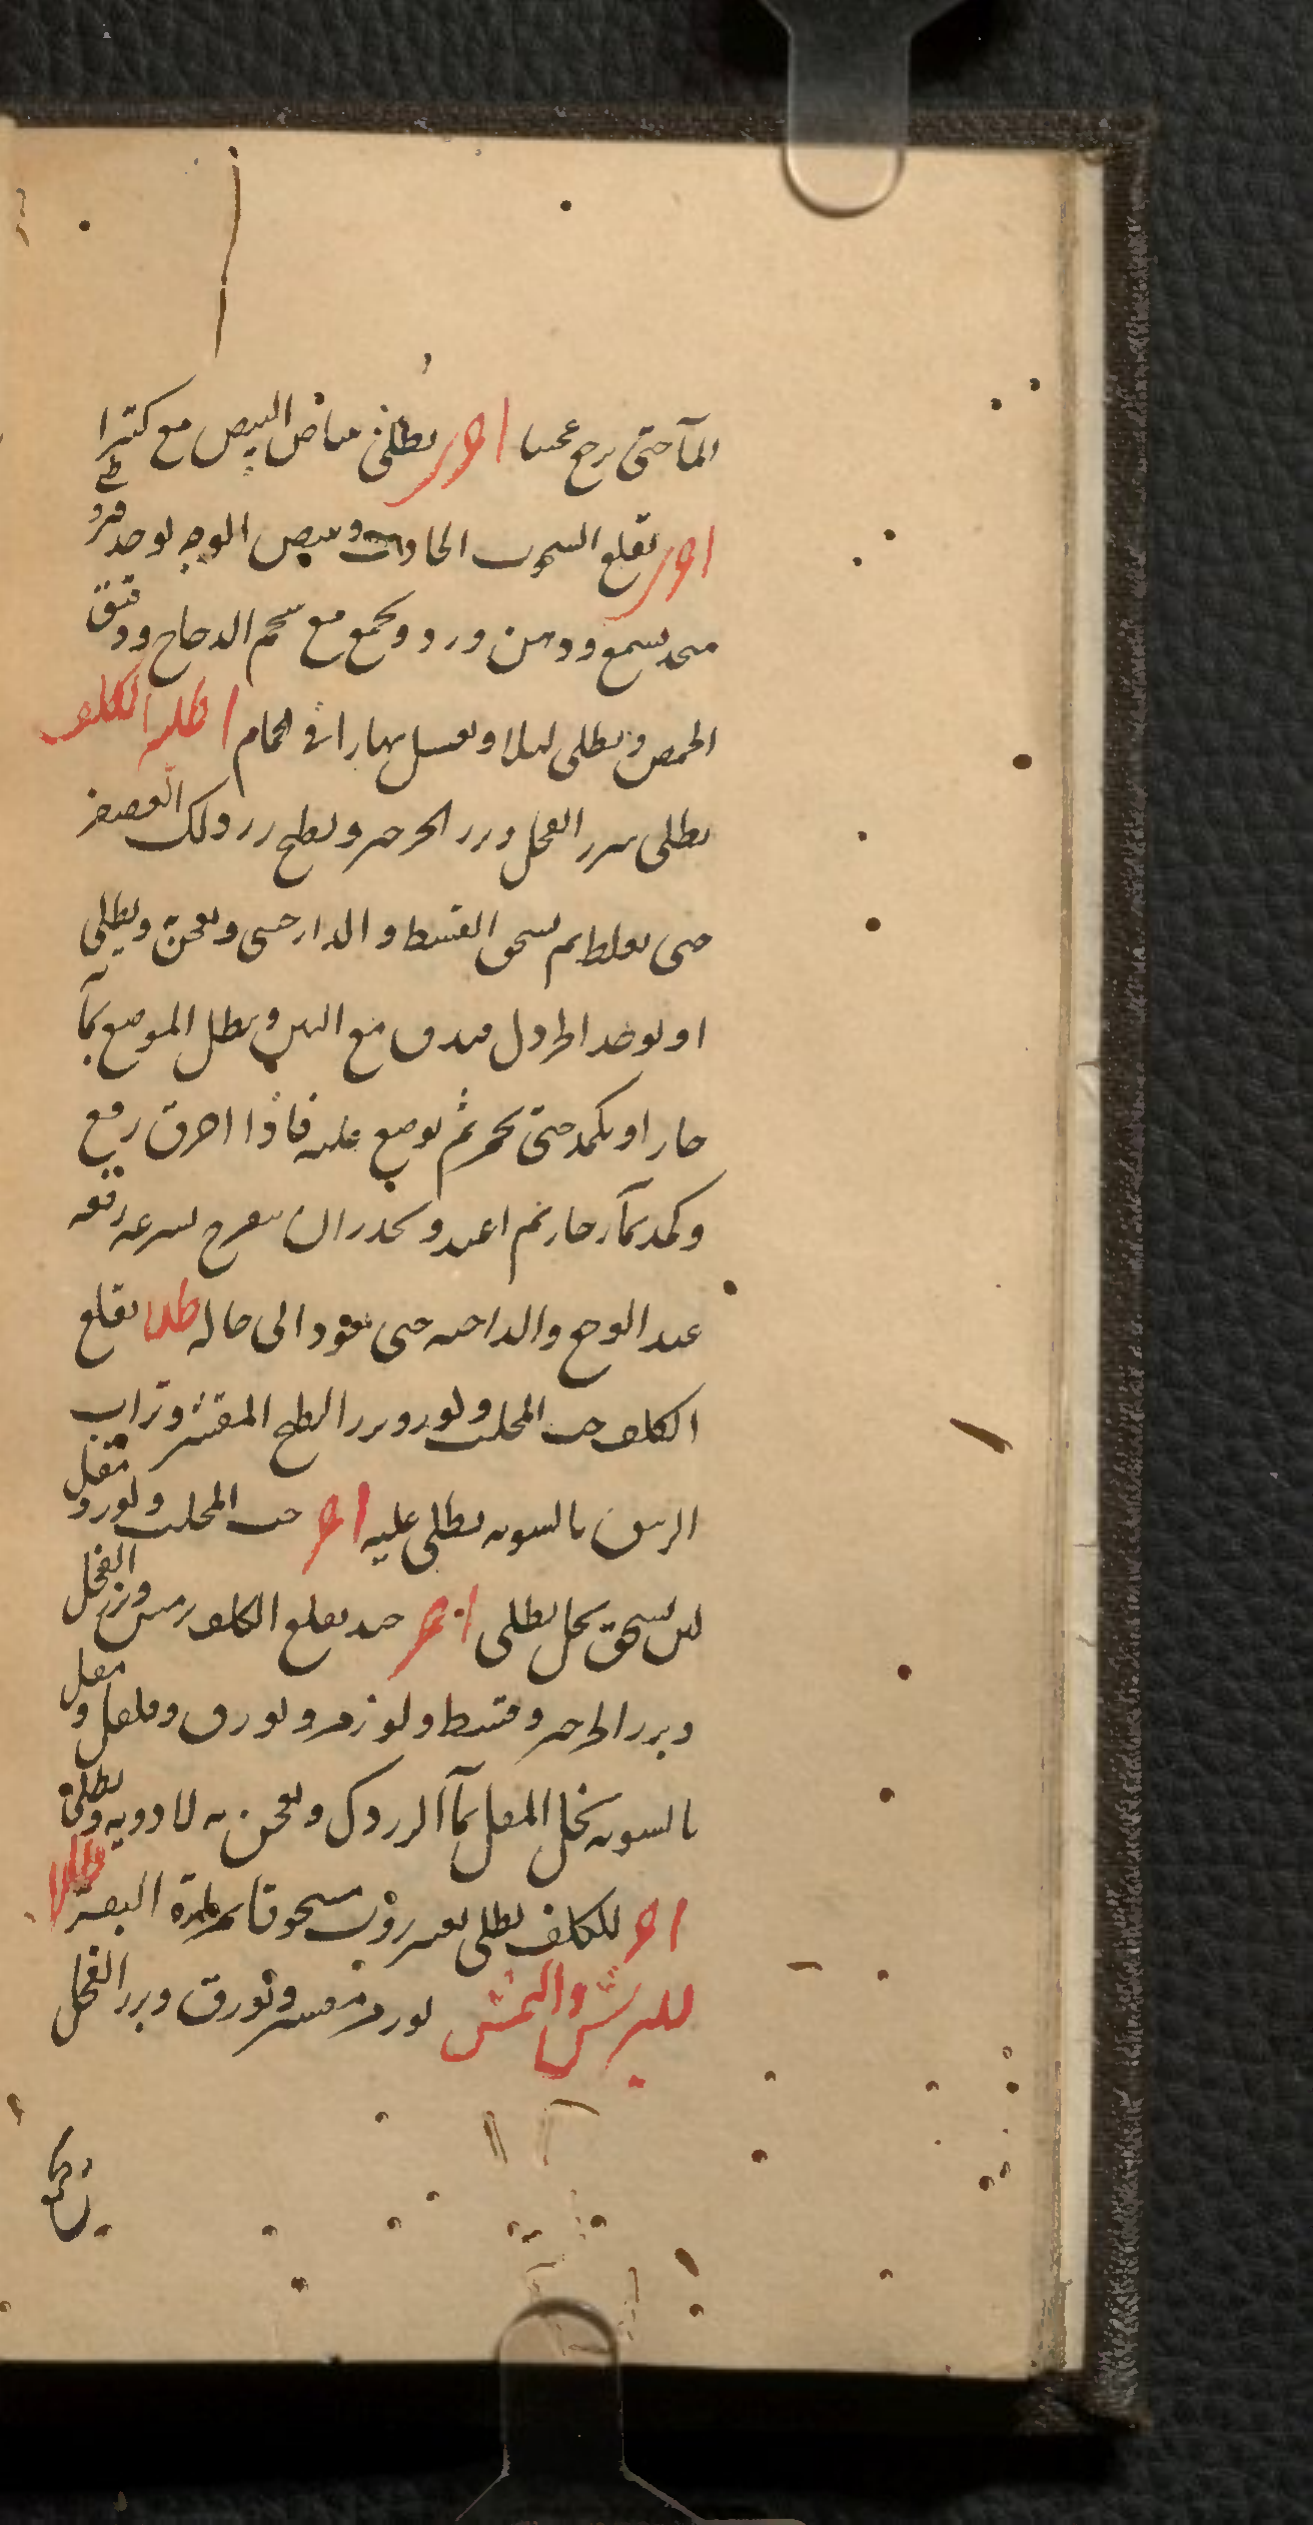 المآ حتى يرجع عجينا اخر يطلى ببياض البيض مع كثيرا
اخر يقلع السحوب الحادث ويبيض الوجه يوخذ
بشمع ودهن ورد ويجمع مع شحم الدجاج ودقيق
الحمص ويطلى ليلا ويغسل نهارا فى الحمام اطلية الكلف
يطلى ببزر الفجل وبزر الجرجير ويطبخ زردك العصفر
حتى يغلظ ثم يسحق القسط والدارصينى ويعجن ويطلى
او يوخذ الخردل فيدق مع التين ويطلى الموضع بمآ
حار او يكمد حتى يحمر ثم يوضع عليه فاذا احرق رفع
وكمد بمآ حار ثم اعيد ويحذر ان يتقرح بسرعة رفعه
عند الوجع والداحس حتى يعود الى حاله طلا يقلع
الكلف حب المحلب ولوز وبزر البطيخ المقشر وتراب
الزيبق بالسوية يطلى عليه اخر حب المحلب ولوز و مقل
لين يسحق بخل يطلى اخر جيد يقلع الكلف ترمس وبزر الفجل
وبزر الجرجير وقسط ولوز مر وبورق وفلفل و مقل
بالسوية يحل المقل بمآ الزردك ويعجن به الادوية ويطلى
اخر للكلف يطلى مسحوقا بمرارة البقر طلا
للبرش والنمش لوز مر مقشر وبورق وبزر الفجل